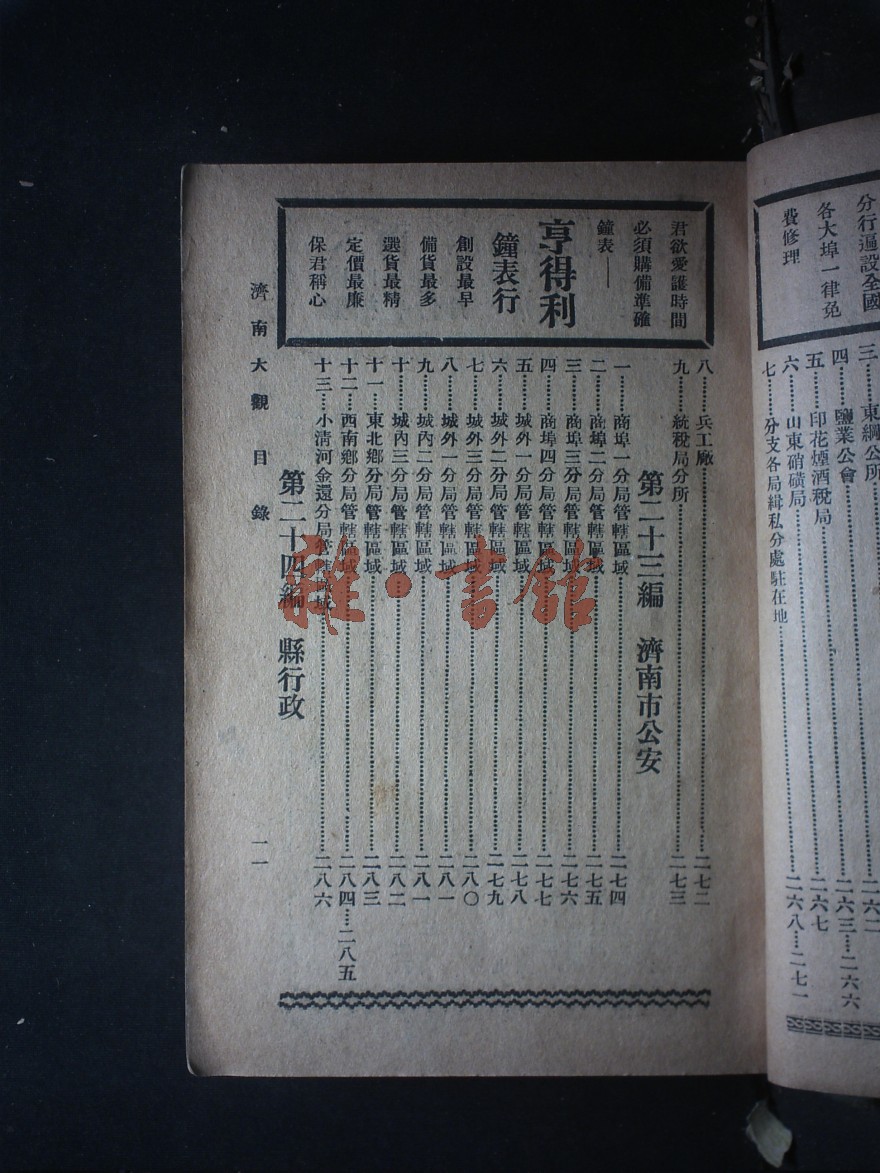 分行遍設全國
各大埠一律免
費修理
三……東綱公所……二六二
四……鹽業公會……二六三……二六六
五……印花煙酒稅局……二六七
六……山東硝磺局……二六八……二七一
七……分支各局緝私分處駐在地
君欲愛護時間
必須購備準確
鐘表——
亨得利
鐘表行
創設最早
備貨最多
選貨最精
定價最廉
保君稱心
八……兵工廠……二七二
九……統稅局分所……二七三
第二十三編 濟南市公安
一……商埠一分局管轄區域……二七四
二……商埠二分局管轄區域……二七五
三……商埠三分局管轄區域……二七六
四……商埠四分局管轄區域……二七七
五……城外一分局管轄區域……二七八
六……城外二分局管轄區域……二七九
七……城外三分局管轄區域……二八〇
八……城外一分局管轄區域……二八一
九……城內二分局管轄區域……二八一
十……城內三分局管轄區域……二八二
十一……東北鄉分局管轄區域……二八三
十二……西南鄉分局管轄區域……二八四……二八五
十三……小清河金還分局管轄區域……二八六
第二十四編 縣行政
濟南大觀 目錄 一一
雜·書館